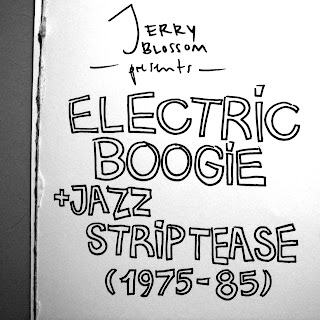 JERRY
BLOSSOM
— presents —
ELECTRIC
BOOGIE
+JAZZ
STRIPTEASE
(1975-85)